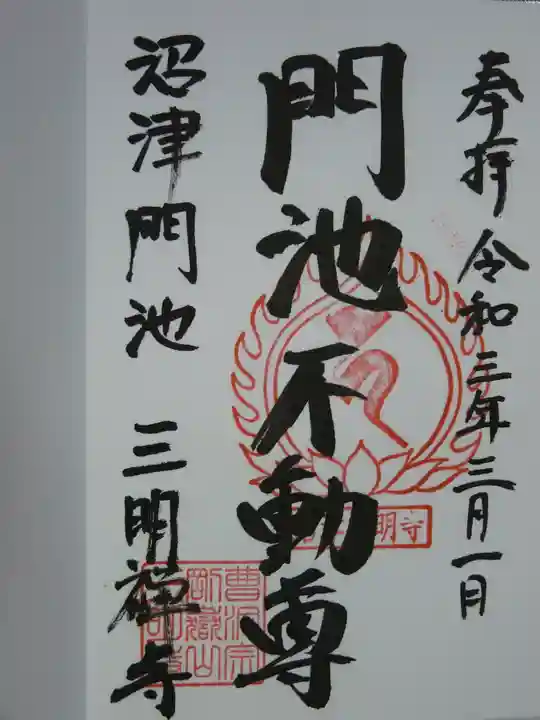 奉拝 令和三年三月一日
門池不動尊
明寺
沼津門池 三明禅寺
曹洞宗